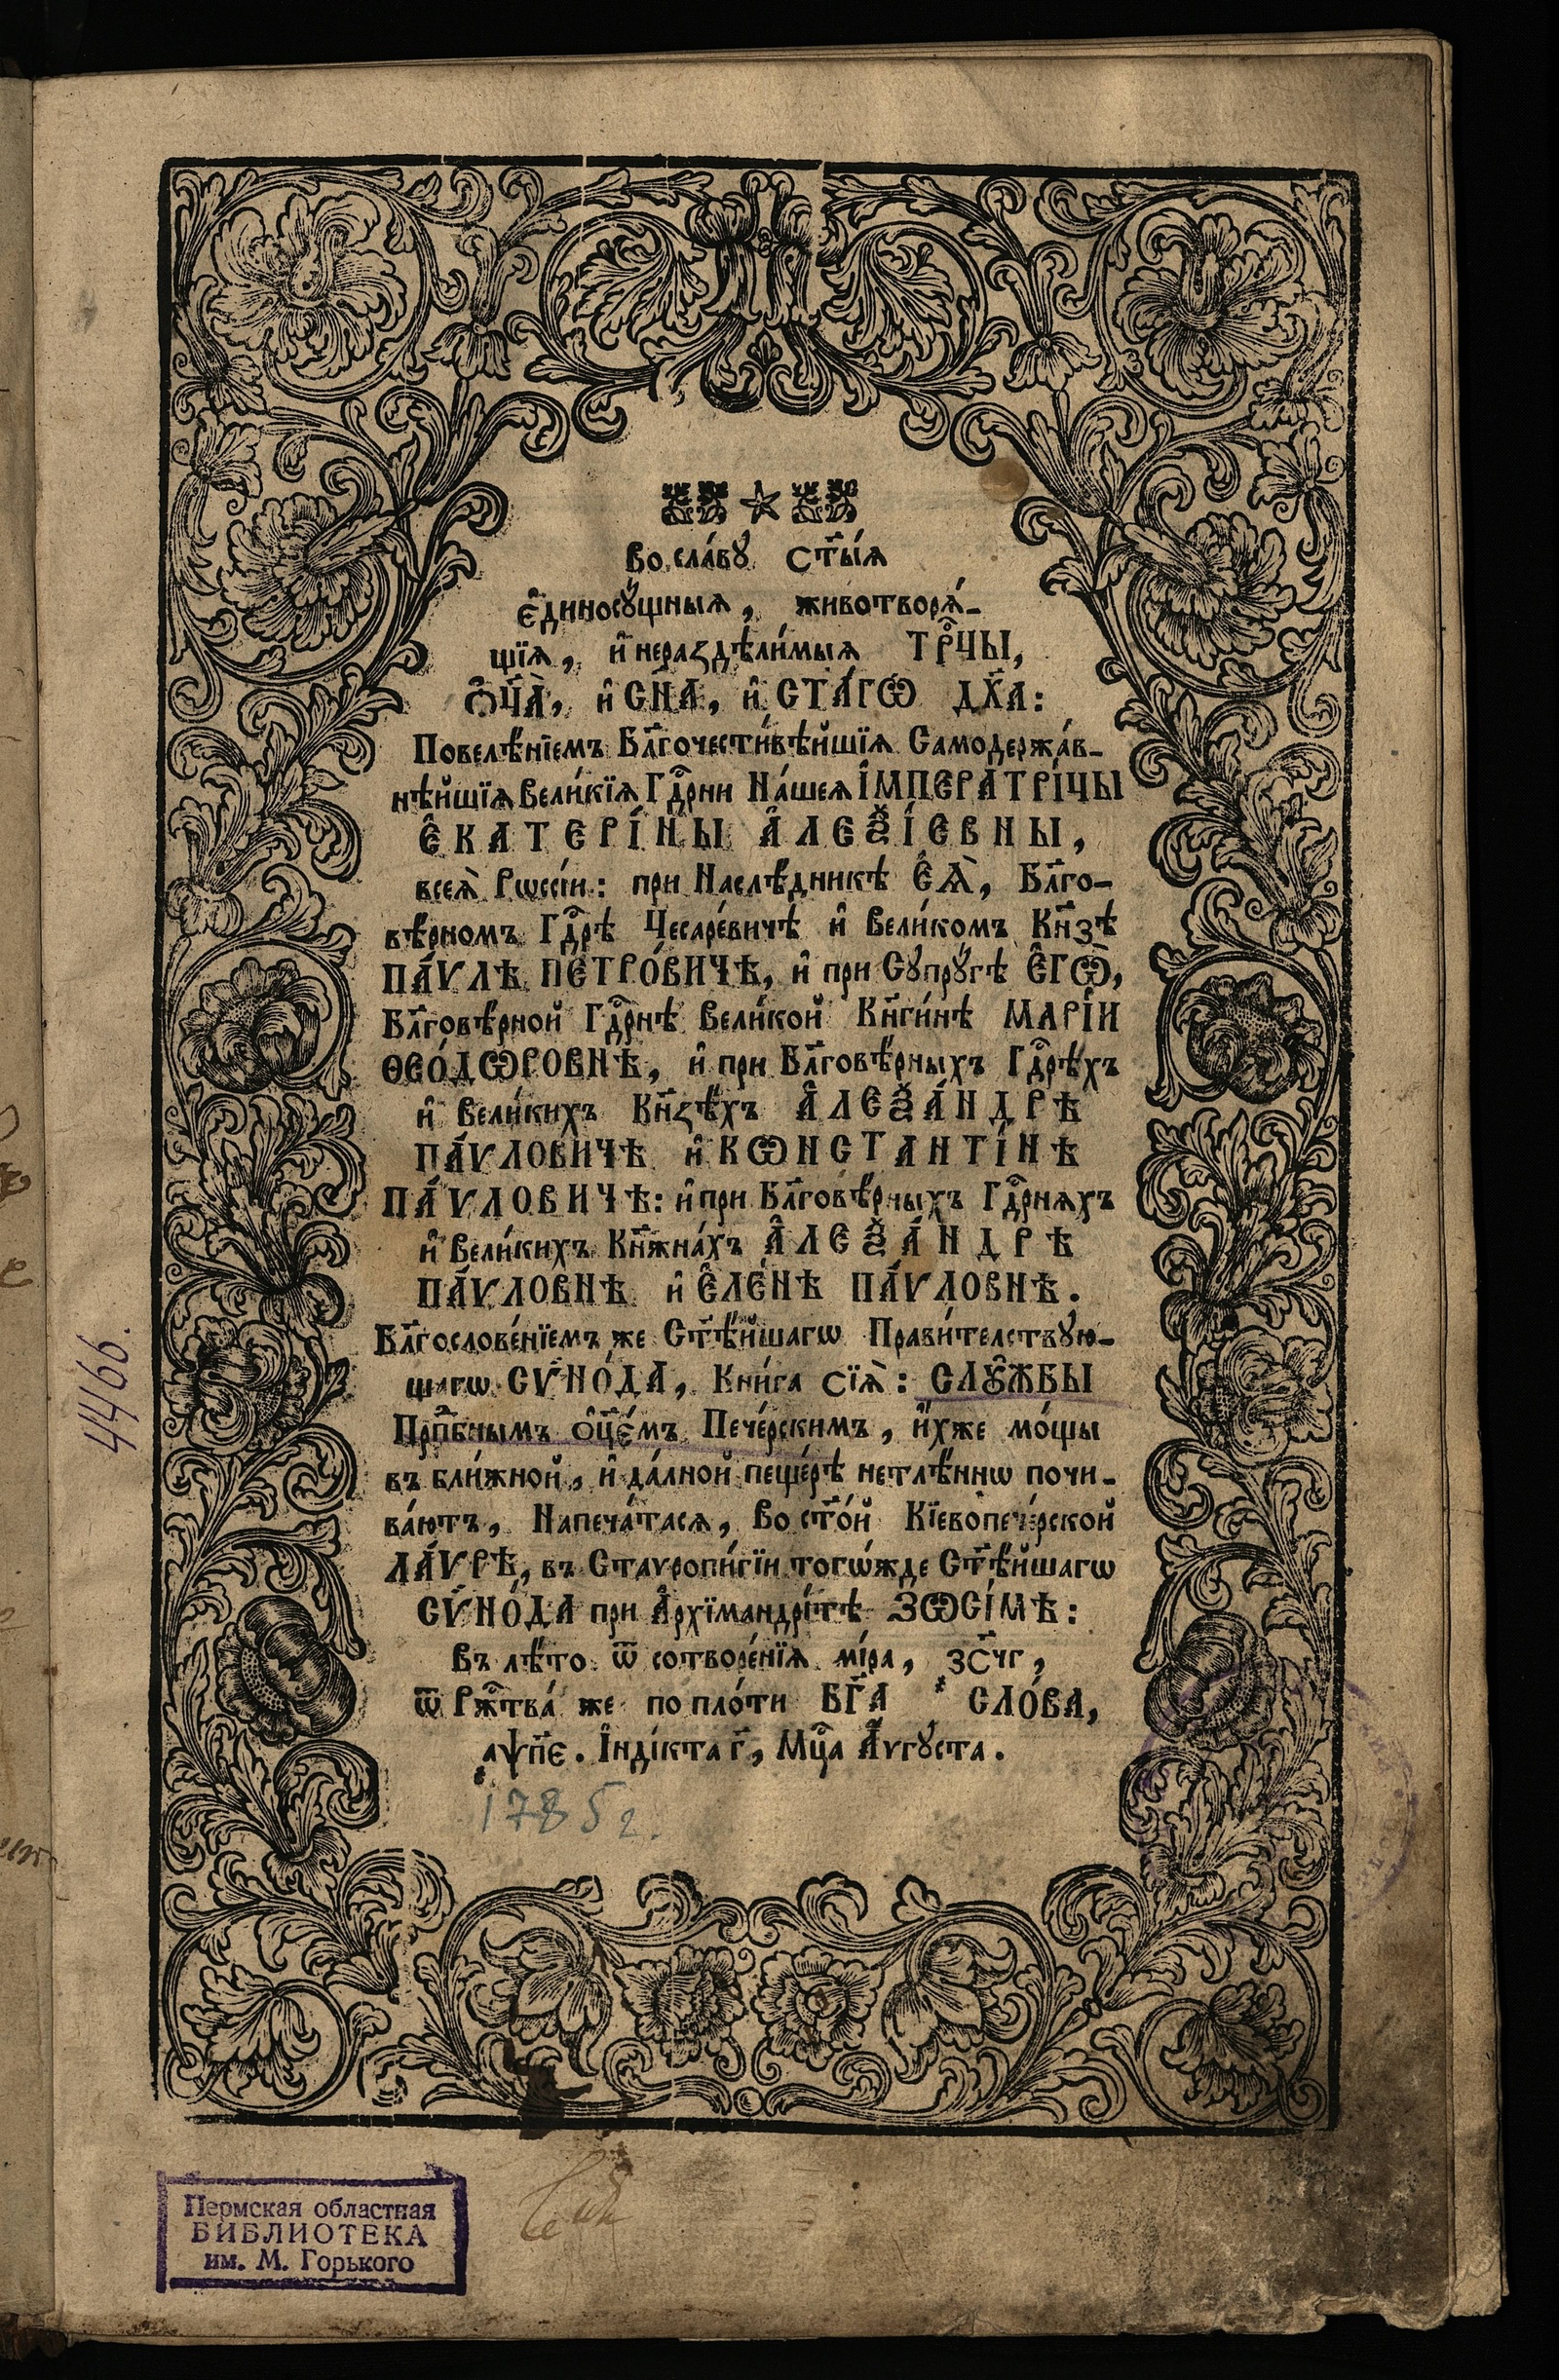 Во сла́вꙋ ст҃ы́ѧ
є҆диносꙋ́щныѧ, животворѧ́-
щїѧ, и҆ нераздѣли́мыѧ ТРⷪ҇ЦЫ,
Ѻ҆Ц҃А̀, и҆ СН҃А, и҆ СТА́ГѠ ДХ҃А:
Повелѣ́нїемъ Бл҃гочести́вѣйшїѧ Самодержа́в-
нѣйшїѧ Вели́кїѧ Гдⷭ҇рни На́шеѧ І҆МПЕРАТРІ́ЦЫ
Є҆КАТЕРІ́НЫ А҆ЛЕѮІ́ЕВНЫ,
всеѧ̀ Рѡссі́и: при Наслѣ́дникѣ Є҆Ѧ̀, Бл҃го-
вѣ́рномъ Гдⷭ҇рѣ Цесаре́вичѣ и҆ Вели́комъ Кн҃зѣ
ПА́ѴЛѢ ПЕТРО́ВИЧѢ, и҆ при Сꙋпрꙋ́гѣ Є҆ГѠ̀,
Бл҃говѣ́рной Гдⷭ҇рнѣ Вели́кой Кн҃ги́нѣ МАРІ́И
ѲЕО́ДѠРОВНѢ, и҆ при Бл҃говѣ́рныхъ Гдⷭ҇рѣхъ
и҆ Вели́кихъ Кн҃зѣ́хъ А҆ЛЕѮА́НДРѢ
ПА́ѴЛОВИЧѢ и҆ КѠНСТАНТІ́НѢ
ПА́ѴЛОВИЧѢ: и҆ при Бл҃говѣ́рныхъ Гдⷭ҇рнѧхъ
и҆ Вели́кихъ Кн҃жна́хъ А҆ЛЕѮА́НДРѢ
ПА́ѴЛОВНѢ и҆ Є҆ЛЕ́НѢ ПА́ѴЛОВНѢ.
Бл҃гослове́нїемъ же Ст҃ѣ́йшагѡ Прави́телствꙋю-
щагѡ СѴНО́ДА, Кни́га сїѧ̀: СЛꙊ҆́ЖБЫ
Прпⷣбнымъ ѻ҆ц҃є́мъ Пече́рскимъ, и҆́хже мо́щы
въ бли́жной, и҆ да́лной пеще́рѣ нетлѣ́ннѡ почи-
ва́ютъ, Напеча́тасѧ, Во ст҃о́й Кїевопече́рской
ЛА́ѴРѢ, въ Ставропи́гїи тогѡ́жде Ст҃ѣ́йшагѡ
СѴНО́ДА при А҆рхїмандрі́тѣ ЗѠСІ́МѢ:
Въ лѣ́то ѿ сотворе́нїѧ мі́ра, ҂зс҃чг,
ѿ Ржⷭ҇тва́ же по пло́ти БГ҃А СЛО́ВА,
҂аѱп҃є. І҆ндікта г҃, Мцⷭ҇а А҆́ѵгꙋста.
1785 г.
4466.
Пермская областная
БИБЛИОТЕКА
им. М. Горького